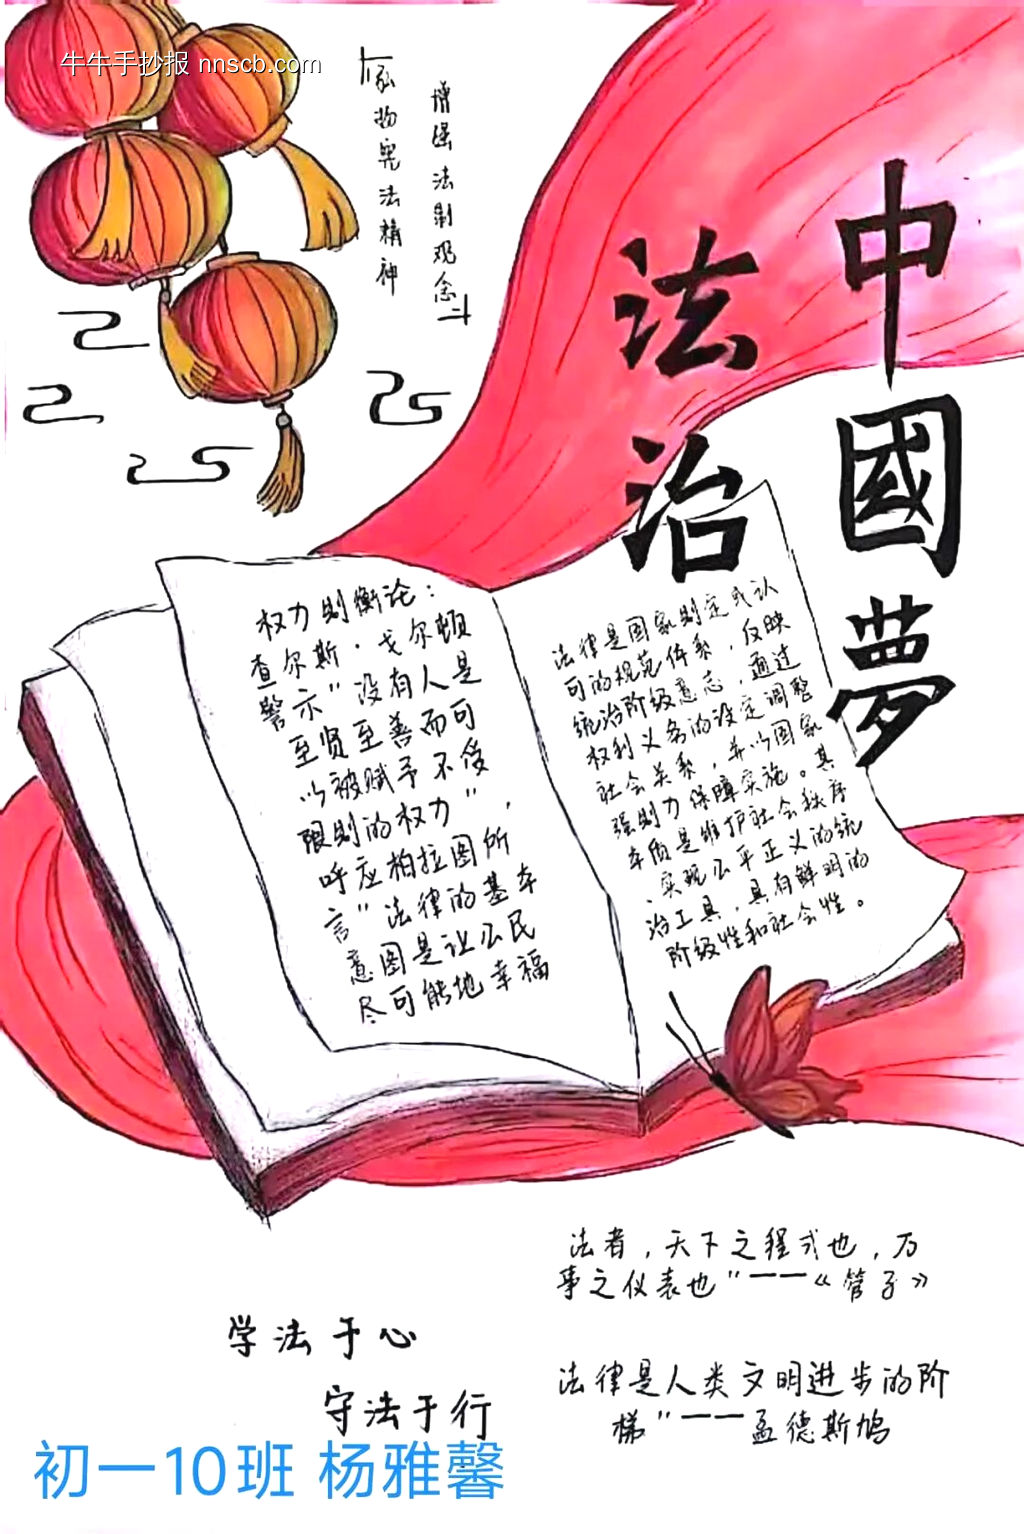 牛牛手抄报 nnscb.com
弘扬宪法精神
增强法制观念
中國夢
法治
权力制衡论：
查尔斯·戈尔顿
警示"没有人是
至贤至善而可
以被赋予不受
限制的权力"，
呼应柏拉图所
言"法律的基本
意图是让公民
尽可能地幸福
法律是国家制定或认
可的规范体系，反映
统治阶级意志，通过
权利义务的设定调整
社会关系，并以国家
强制力保障实施。其
本质是维护社会秩序
、实现公平正义的统
治工具，具有鲜明的
阶级性和社会性。
法者，天下之程式也，万
事之仪表也"——《管子》
学法于心
守法于行
法律是人类文明进步的阶
梯"——孟德斯鸠
初一10班 杨雅馨